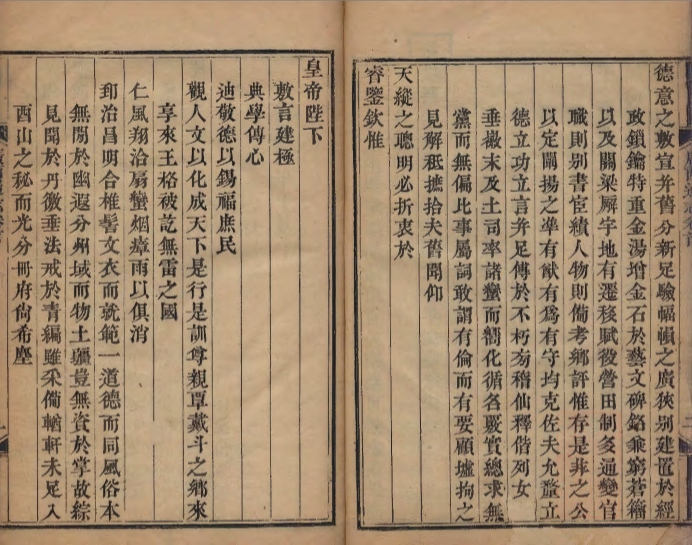 德意之敷宣并舊分新足驗幅幀之廣狹別建置於經
政鎖鑰特重金湯增金石於藝文碑銘兼窮蒼籀
以及關梁廨宇地有遷移賦役營田制多通變官
職則别書宦績人物則備考鄉評惟存是非之公
以定闡揚之準有猷有為有守均克佐夫允釐立
德立功立言并足傳於不朽旁稽仙釋偕列女
垂掞末及土司率諸蠻而嚮化循名覈實總求無
黨而無偏比事屬詞敢謂有倫而有要顧墟拘之
見解秪摭拾夫舊聞仰
天縱之聰明必折衷於
睿鑒欽惟
皇帝陛下
敷言建極
典學傳心
迪敬德以錫福庶民
觀人文以化成天下是行是訓尊親覃戴斗之鄉來
享來王格被訖無雷之國
仁風翔洽扇蠻烟瘴雨以俱消
郅治昌明合椎髻文衣而就範一道德而同風俗本
無閒於幽遐分州域而物土疆豈無資於掌故綜
見聞於丹徼垂法戒於青編雖采備輶軒未足入
酉山之秘而光分冊府尙希塵